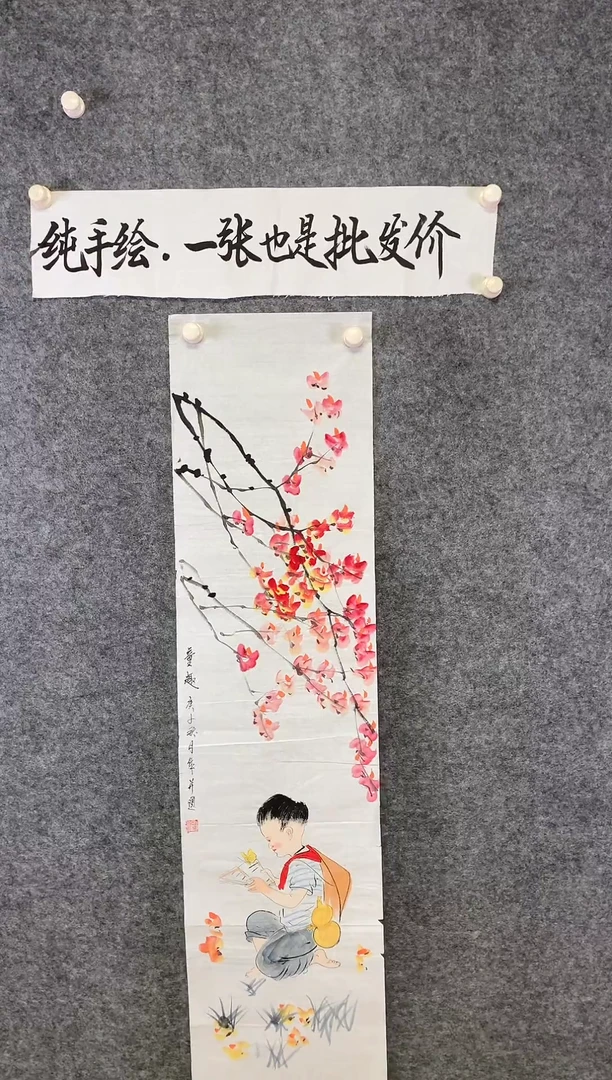 纯手绘.一张也是批发价
童趣 庚子秋月